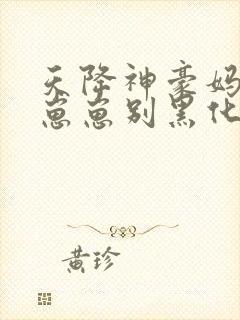 天降神豪妈
崽崽别黑化
黄珍